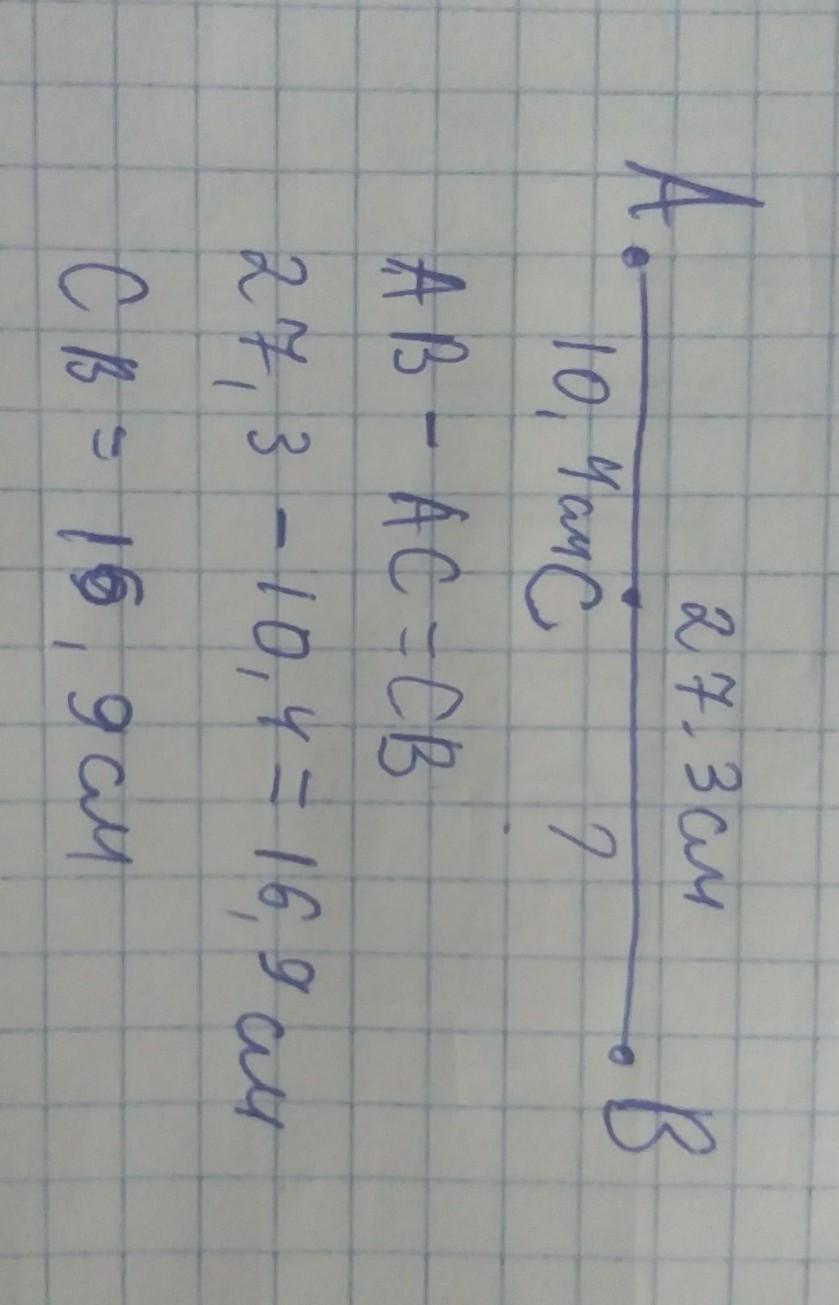 27,3 см
A B
10,4см C ?
AB - AC = CB
27,3 - 10,4 = 16,9 см
CB = 16,9 см